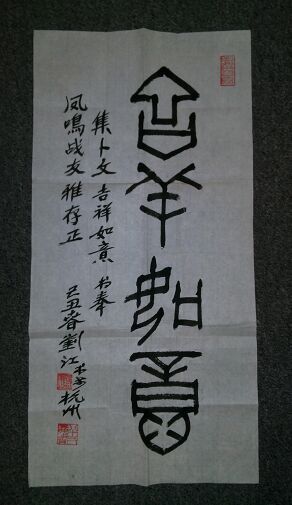 吉羊如意
集卜文吉祥如意书奉
凤鸣战友雅存正
己丑春刘江书于杭州